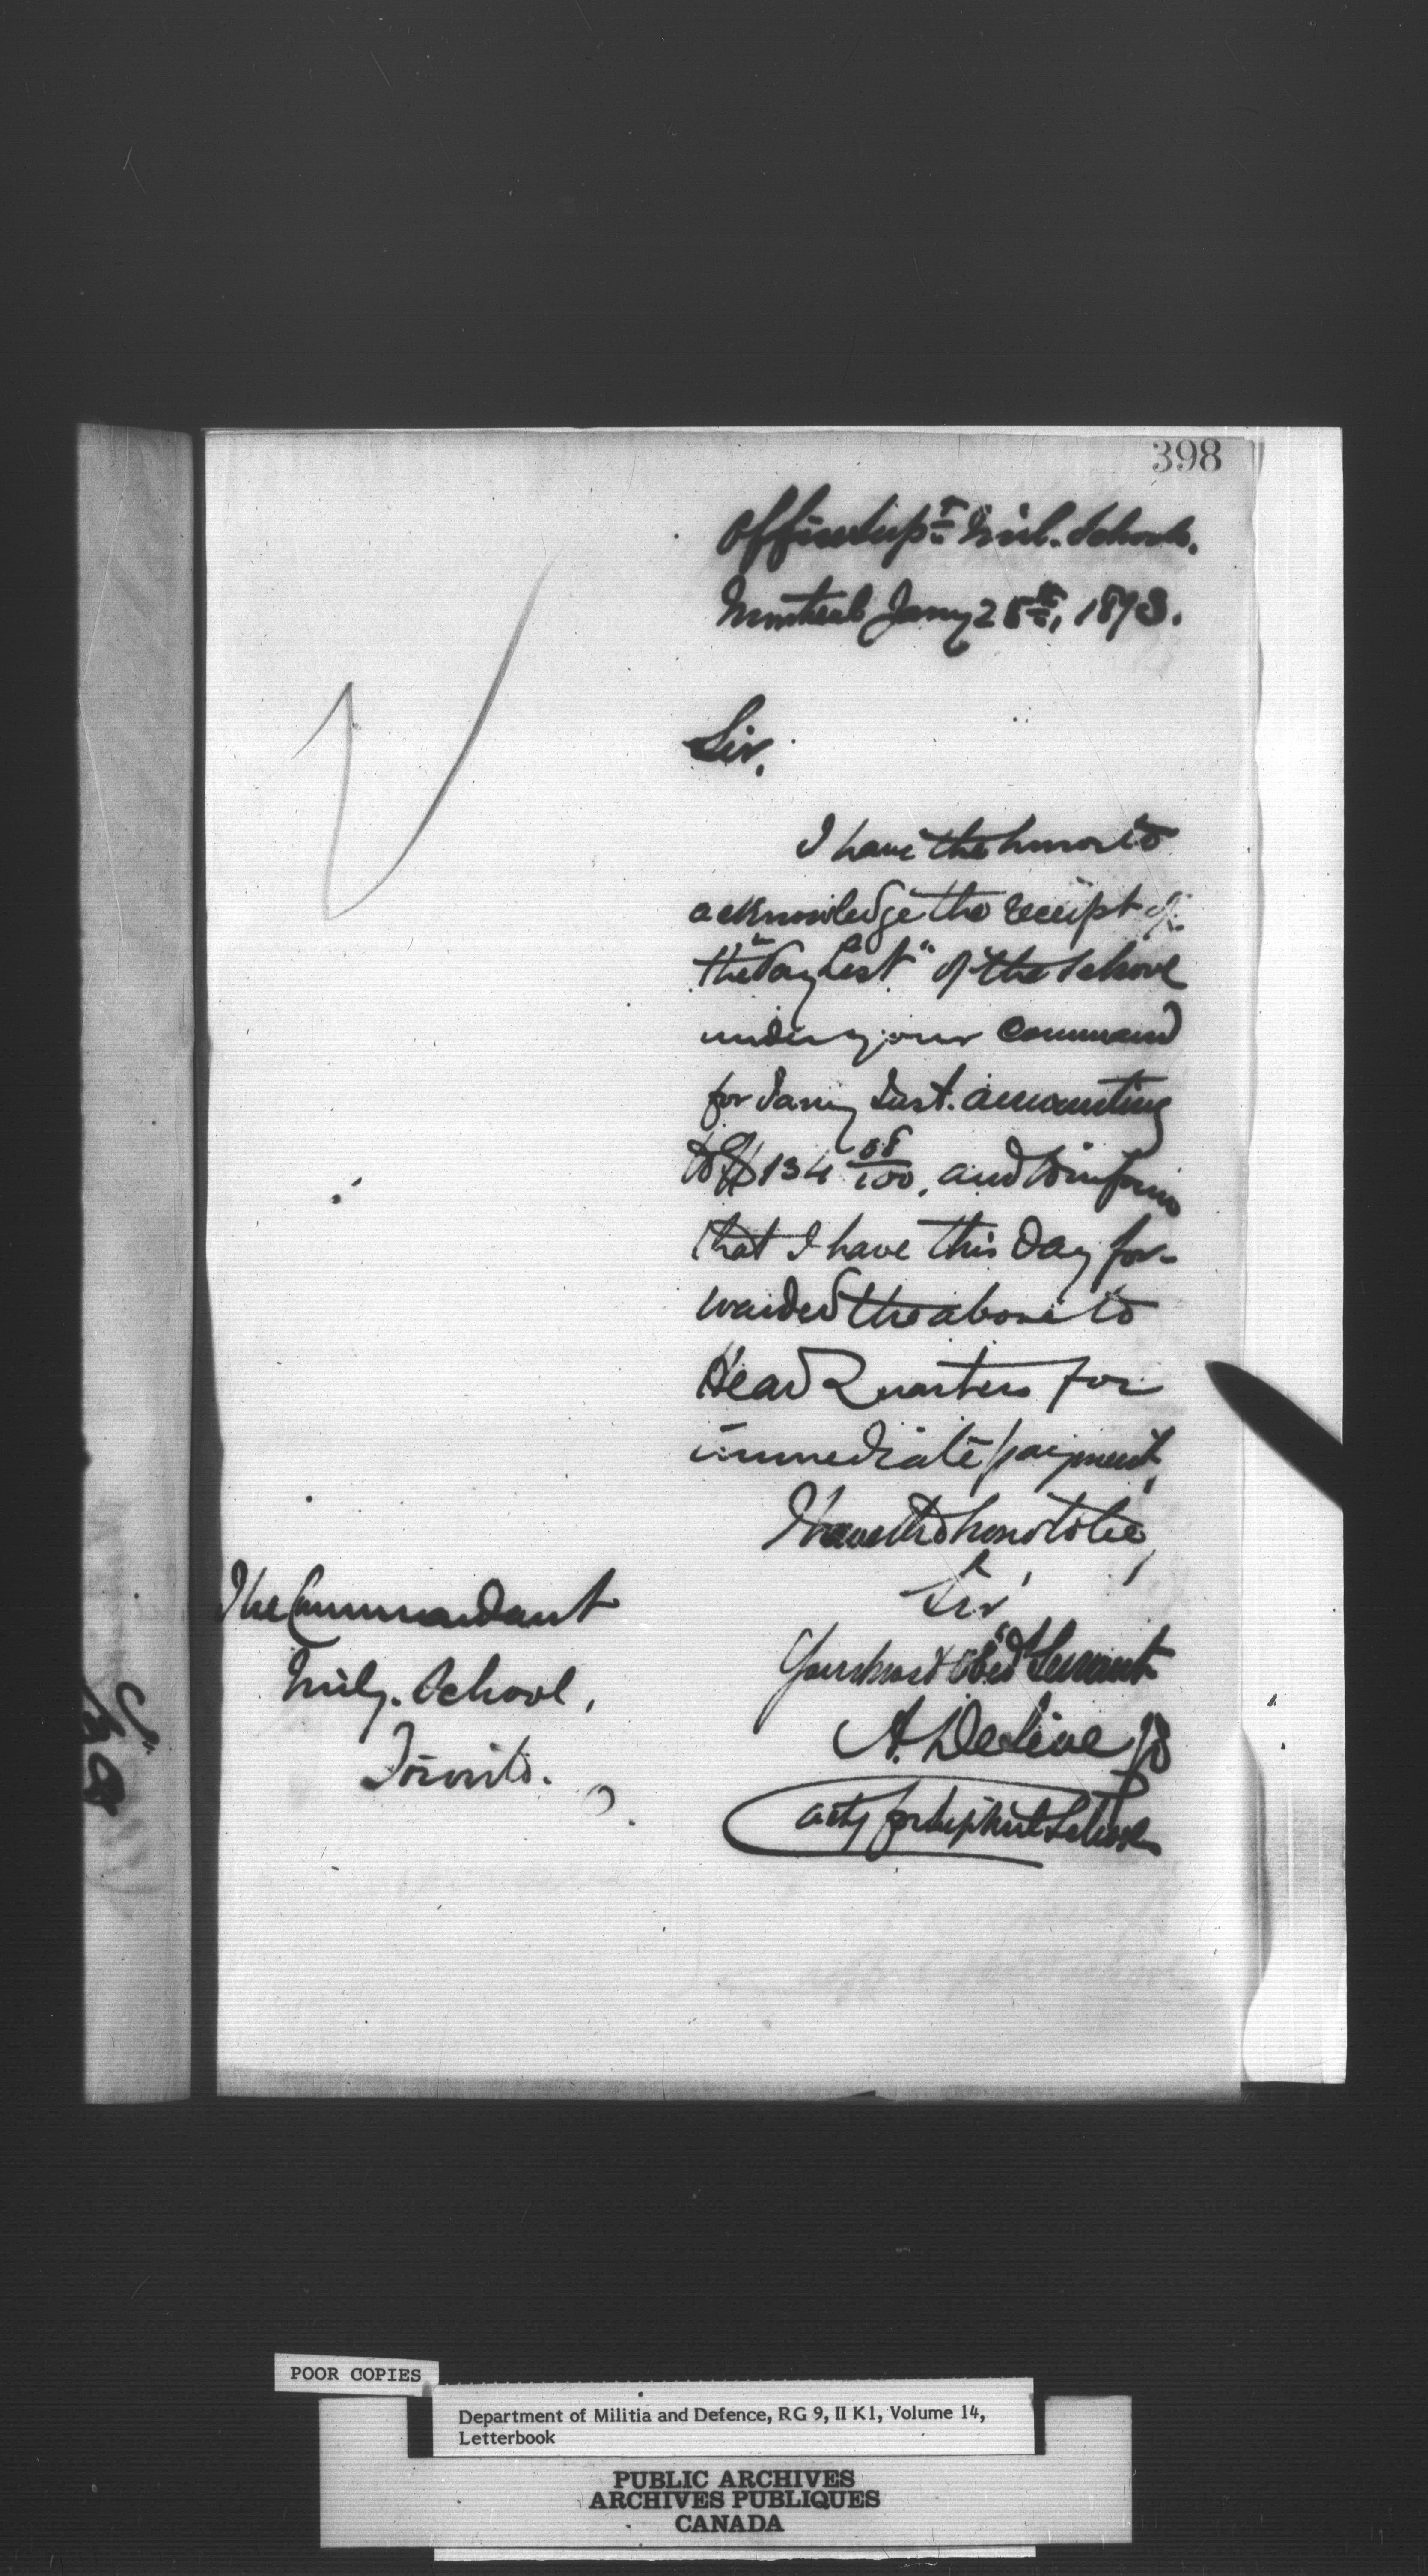 398
Office Supt. Mil. Schools.
Montreal Jany 28th, 1873.
Sir,
I have the honor to
acknowledge the receipt of
the "Pay List" of the School
under your Command
for Jany Inst. amounting
to $134 08/100, and to inform
that I have this day for-
warded the above to
Head Quarters for
immediate payment,
I have the honor to be,
Sir,
Your most Obed Servant
A. De
acty for Supt Mil Schools
The Commandant
Mily. School,
Toronto.
POOR COPIES
Department of Militia and Defence, RG 9, II K1, Volume 14,
Letterbook
PUBLIC ARCHIVES
ARCHIVES PUBLIQUES
CANADA